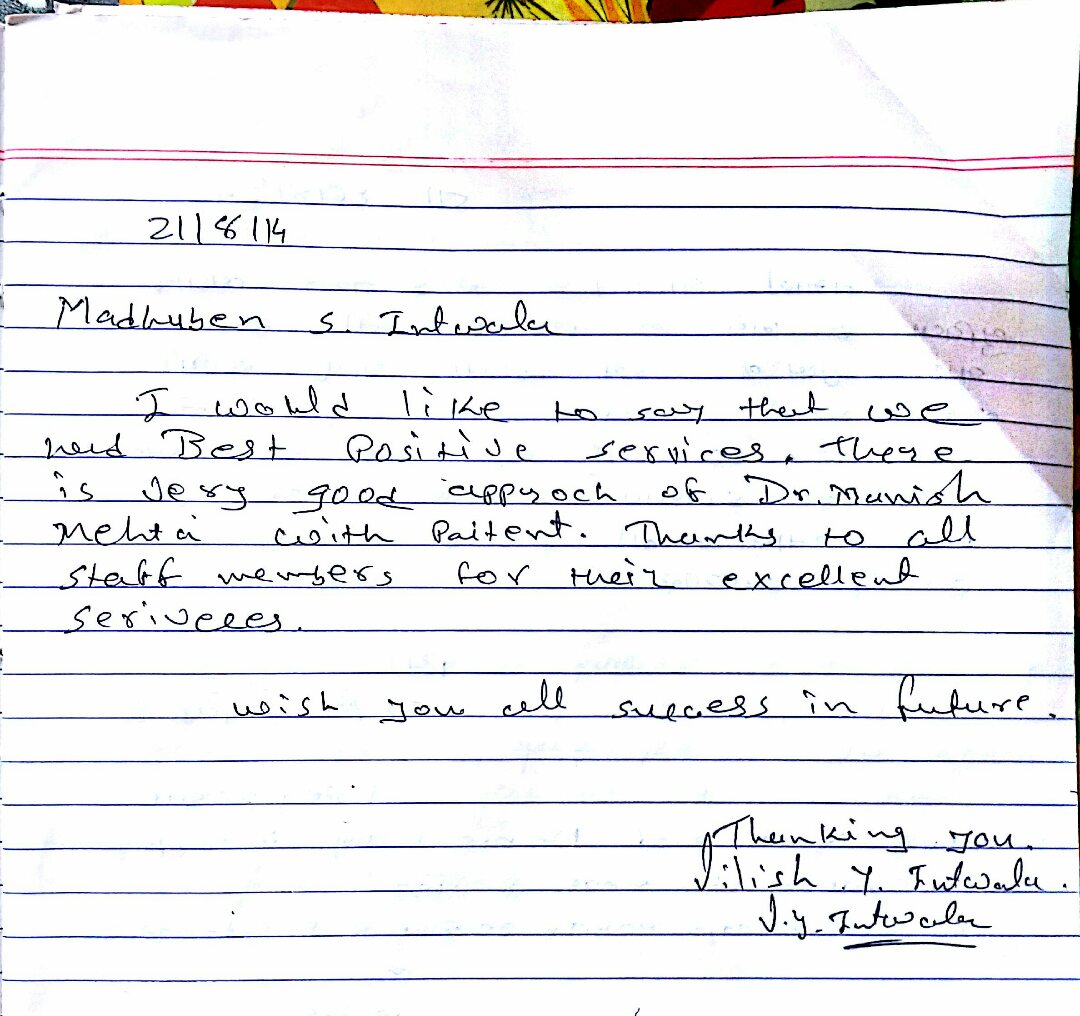 21/8/14
Madhuben S. Intwala
I would like to say that we
had Best Positive services. There
is very good approch of Dr. Manish
Mehta with Paitent. Thanks to all
staff members for their excellent
seriveees.
wish you all success in future.
Thanking you.
Jilish .Y. Intwala.
J.y. Intwala